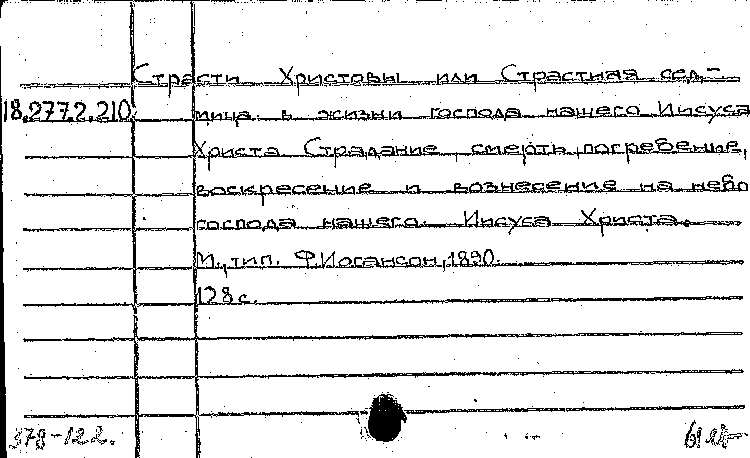 Страсти Христовы или Страстная сед-
18.277.2.210. мица в жизни господа нашего Иисуса
Христа Страдание, смерть, погребение,
воскресение и вознесение на небо
господа нашего Иисуса Христа.
М., тип. Ф.Иогансон, 1890.
128 с.
378-122.